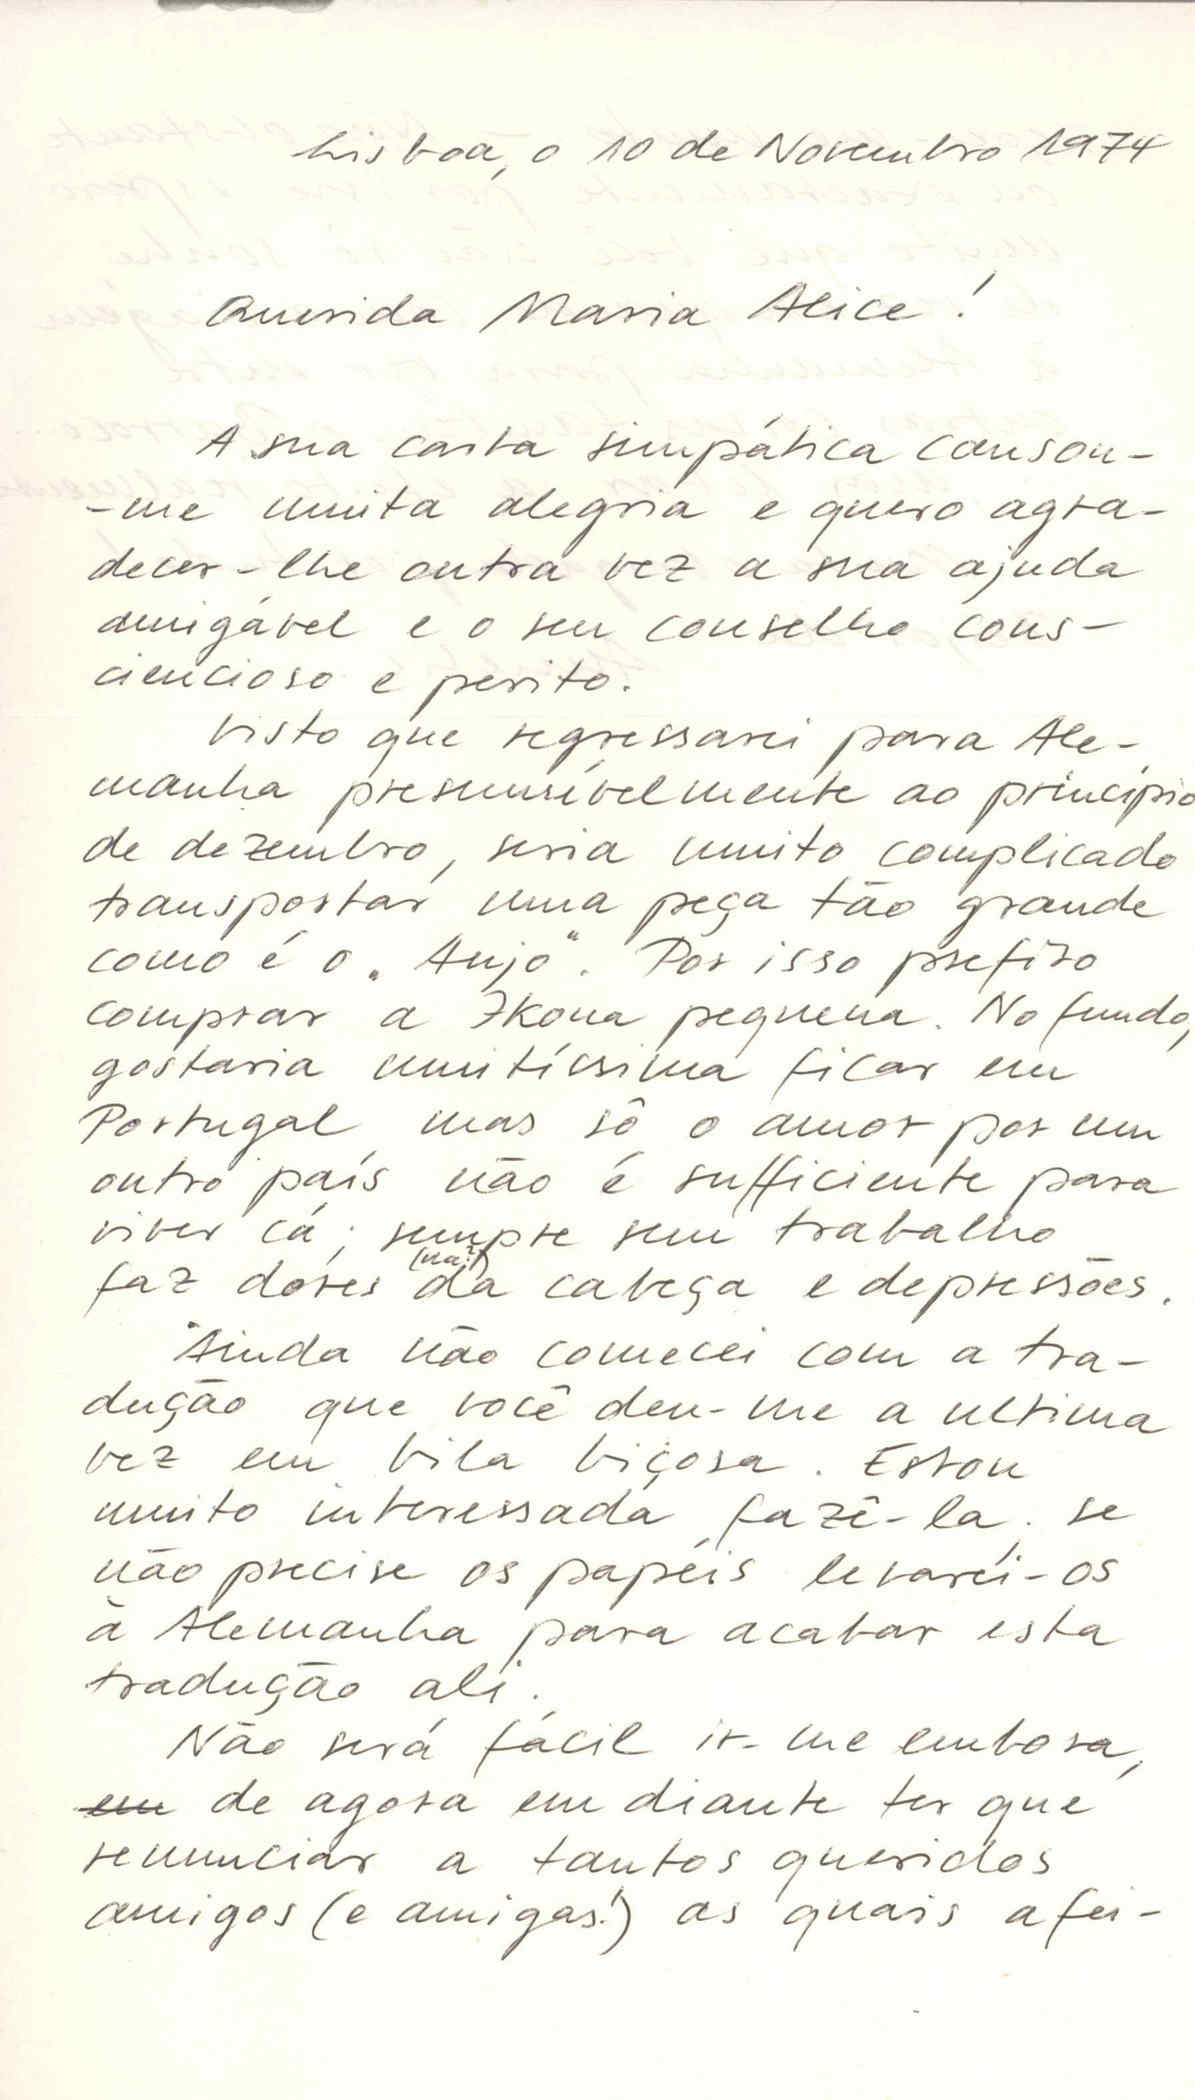 Lisboa, o 10 de Novembro 1974
Querida Maria Alice!
A sua carta simpática causou-
-me muita alegria e quero agra-
decer-lhe outra vez a sua ajuda
amigável e o seu conselho cons-
ciencioso e perito.
Visto que regressarei para Ale-
manha presumívelmente ao princípio
de dezembro, seria muito complicado
transportar uma peça tão grande
como é o „Anjo“. Por isso prefiro
comprar a Ikona pequena. No fundo,
gostaria muitíssima ficar em
Portugal mas só o amor por um
outro país não é sufficiente para
viver cá; sempre sem trabalho
faz dores da (na?) cabeça e depressões.
Ainda não comecei com a tra-
dução que você deu-me a ultima
vez em Vila Viçosa. Estou
muito interessada fazê-la. se
não precise os papéis levarei-os
à Alemanha para acabar esta
tradução ali.
Não será fácil ir-me embora,
em de agora em diante ter que
renunciar a tantos queridos
amigos (e amigas!) as quais afei-